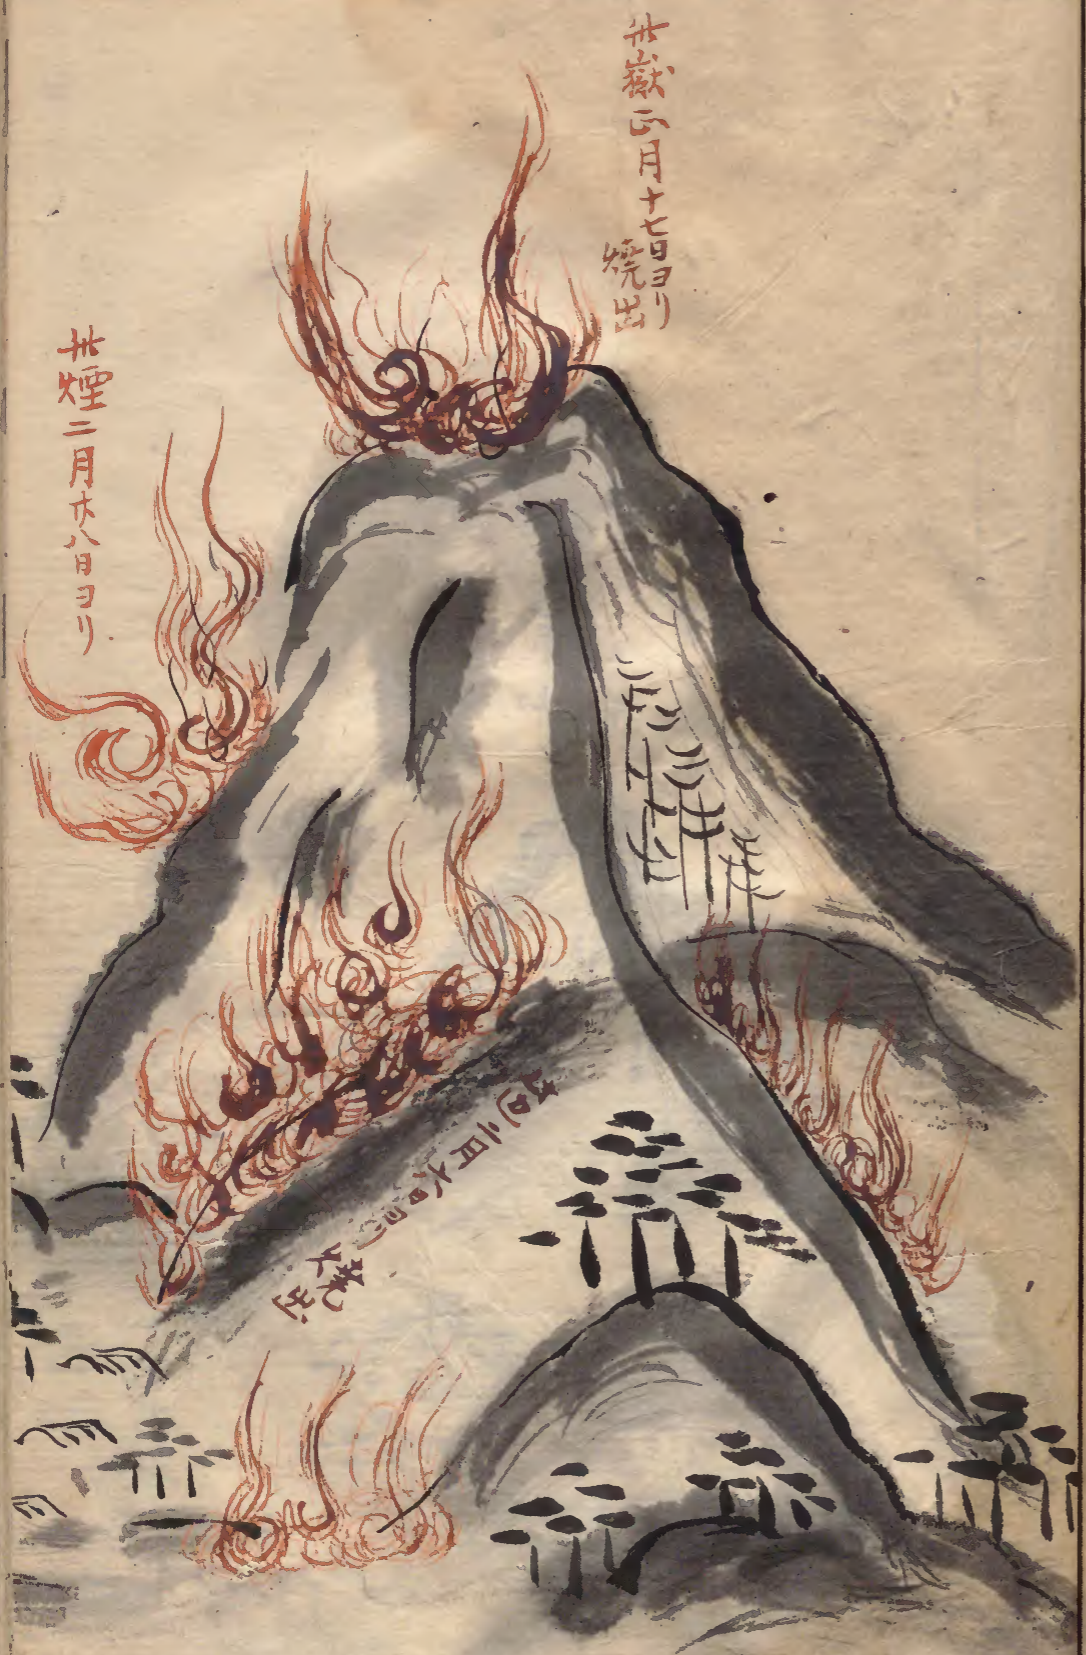 此嶽正月十七日ヨリ
燒出
此煙二月廿八日ヨリ
二月六日ヨリ燒出